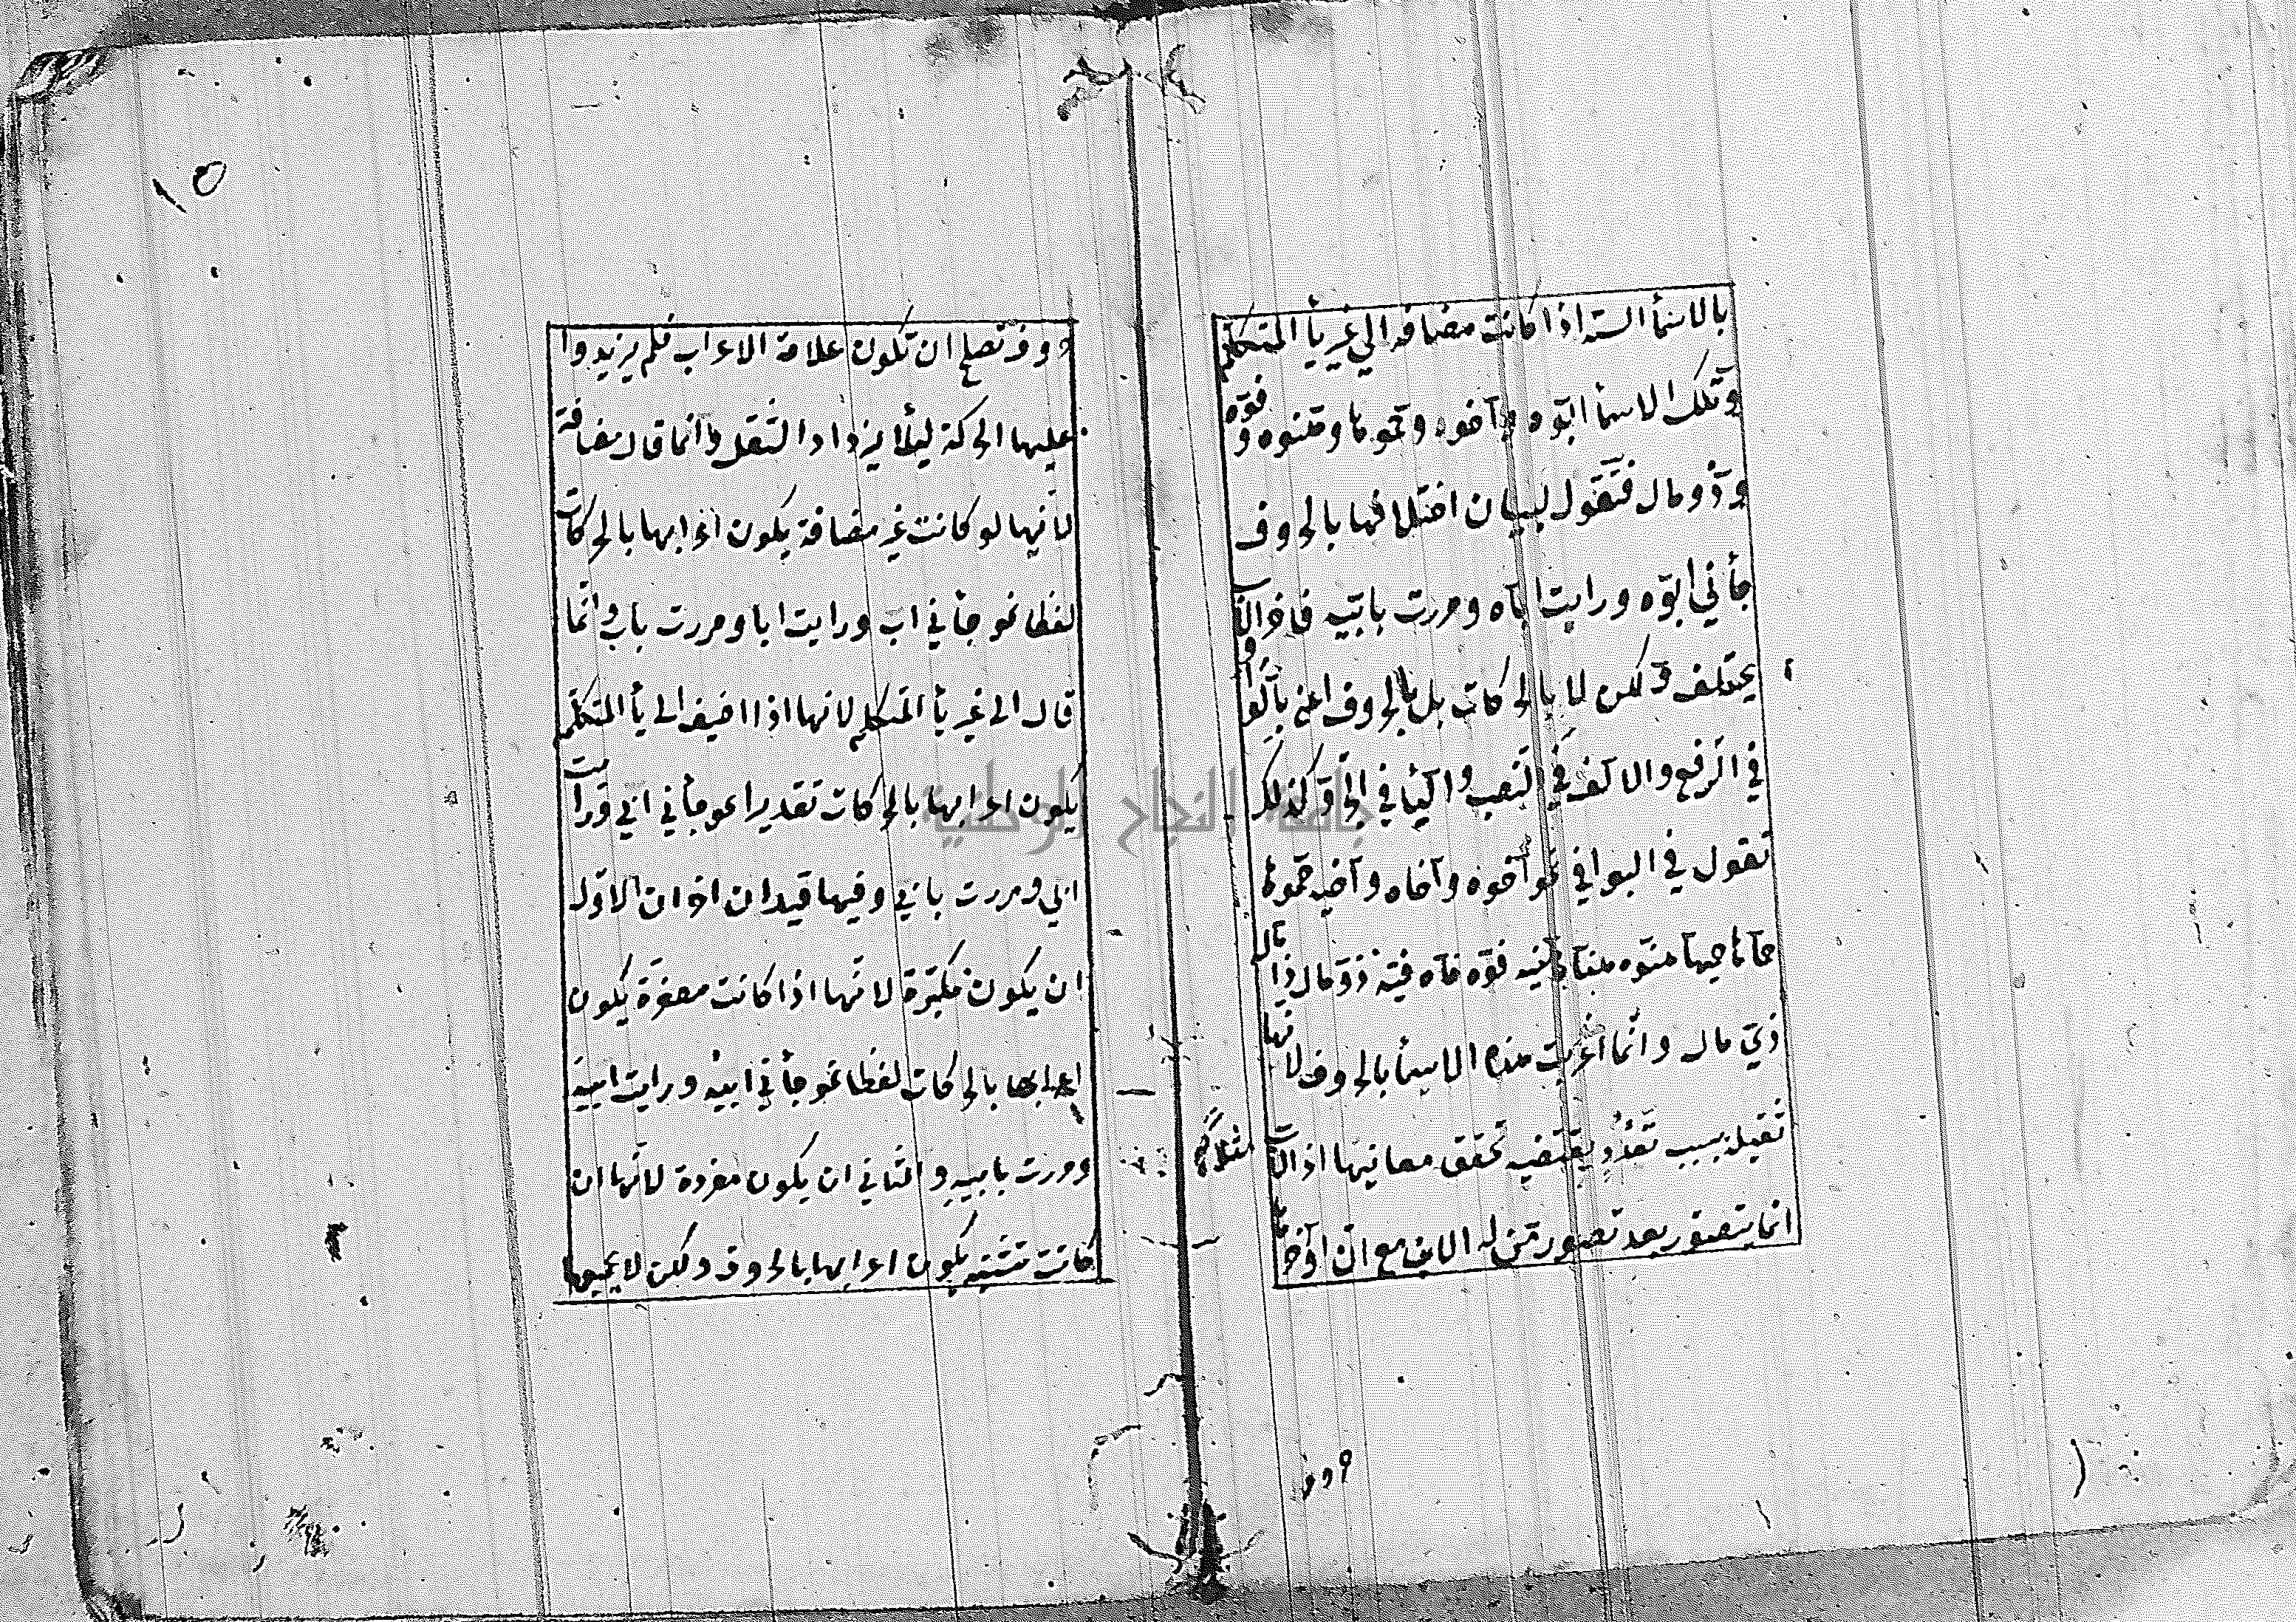 بالاسمأ الستة اذا كانت مضافة الي غير يأ المتكلم
وتلك الاسمأ ابوه وآخوه وحموها وهنوه وفوه
وذو مال فتقول لبيان اختلافها بالحروف
جأني ابوه ورايت اباه ومررت بابيه فاخر الاب
يختلف ولكن لا بالحركات بل بالحروف اعني بالواو
في الرفع والالف في النصب واليأ في الجر وكذلك
تقول في البواقي نحو آخوه وآخاه وآخيه حموها
حماها حميها هنوه هناه هنيه فوه فاه فيه ذو مال ذا مال
ذي مال وانما اعربت هذه الاسمأ بالحروف لانها
ثقيلة بسبب تعدد يقتضيه تحقق معانيها اذ الاب مثلا
انما يتصور بعد تصور من له الابن مع ان اواخرها
حروف تصلح ان تكون علامة الاعراب فلم يزيدوا
عليها الحركة ليلأ يزداد الثقل وانما قال مضافة
لانها لو كانت غير مضافة يكون اعرابها بالحركات
لفظا نحو جأني اب ورايت ابا ومررت باب وانما
قال الى غير يأ المتكلم لانها اذا اضيف الى يأ المتكلم
يكون اعرابها بالحركات تقديرا نحو جأني ابي ورايت
ابي ومررت بابي وفيها قيدان اخران الاول
ان يكون مكبرة لانها اذا كانت مصغرة يكون
اعرابها بالحركات لفظا نحو جأني ابيه ورايت ابيه
ومررت بابيه والثاني ان يكون مفردة لانها ان
كانت تثنية يكون اعرابها بالحروف ولكن لا بجميعها
١٥
جامعة النجاح الوطنية